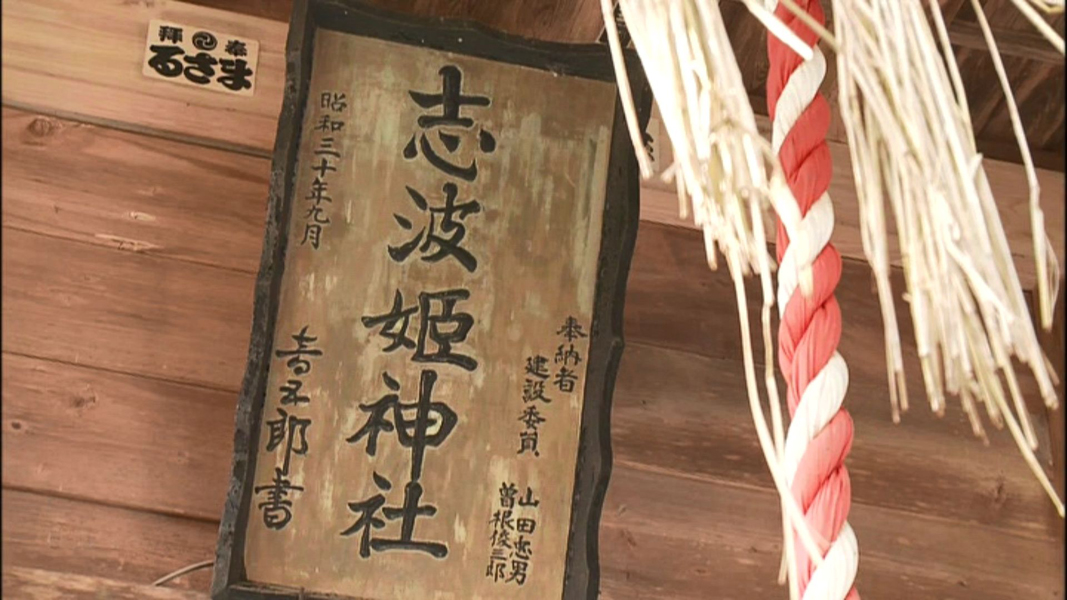 奉拝
まさる
奉納者
建設委員
山田忠男
曽根俊三郎
志波姫神社
昭和三十年九月
書